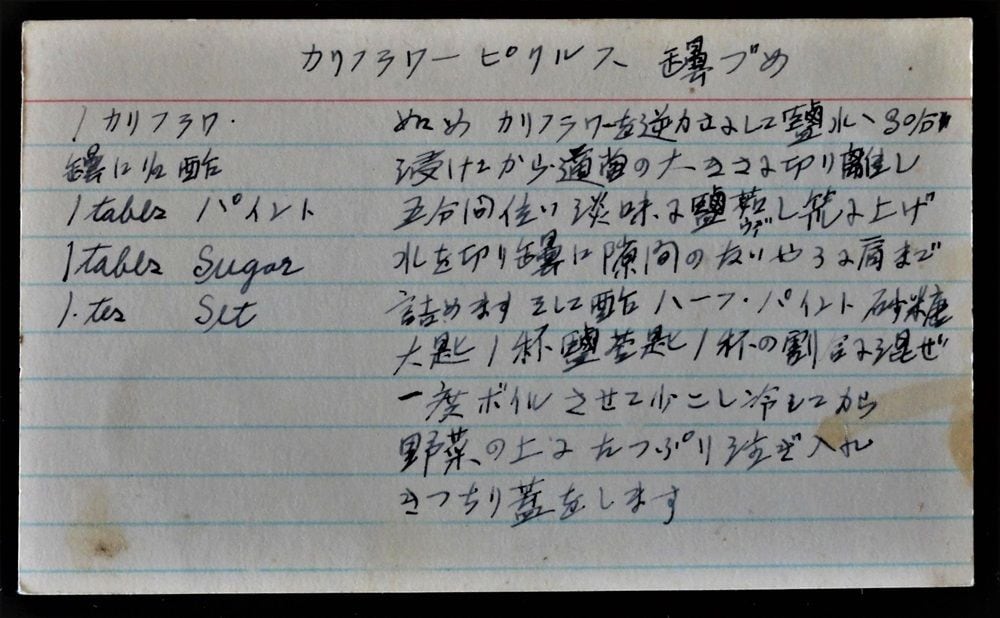 カリフラワーピクルス 罎づめ
1 カリフラワ.
罎に 酢
1 tabls パイント
1 tabls Sugar
1. tes Slt
始め カリフラワーを逆力さみして鹽水へ 30分
浸けてから適當の大きさみ切り離し
五分间位い淡味み鹽茹ウデし笊み上げ
水を切り罎に隙間のないやうみ肩まで
詰めます そして酢 ハーフ・パイント 砂糖
大匙1杯鹽茶匙1杯の割合み混ぜ
一度ボイルさせて少こし冷してから
野菜の上みたつぷり注ぎ入れ
きつちり蓋をします